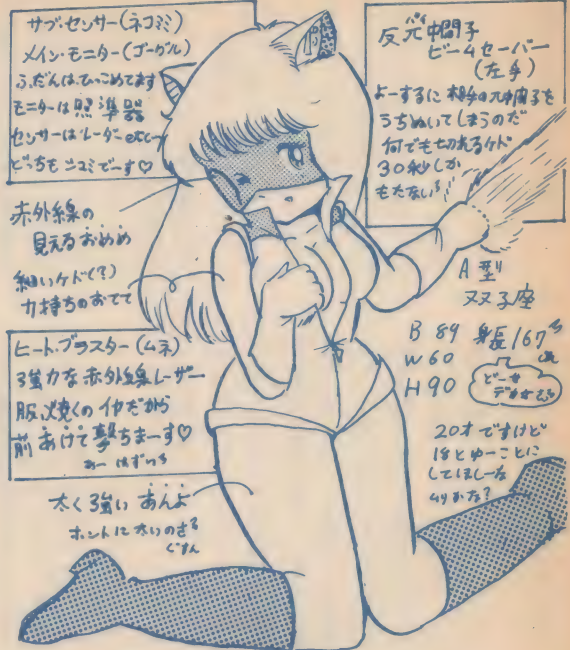 サブ・センサー(ネコミミ)
メイン・モニター(ゴーグル)
ふだんはひっこめてます
モニターは照準器
センサーはレーダー
どっちも ニコミでーす♡
赤外線の
見えるおめめ
細いケド(?)
力持ちのおてて
ヒート・ブラスター(ムネ)
強力な赤外線レーザー
服、焼くのイヤだから
前あけて撃ちまーす♡
あー はずいっち
太く強い あんよ
ホントに太いのさる
反元中間子
ビームセーバー
(左手)
よーするに 相手の中間子を
うちぬいてしまうのだ
何でも切れるケド
30秒しか
もたない!!
A型
双子座
B 89 身長167cm
W 60
H 90
どーせ
デカイてふ
20才ですけど
18とゆーことに
してほしーな
ムリかな?